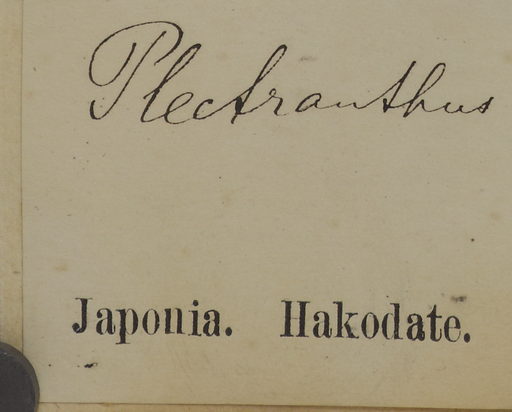 Plectranthus
Japonia. Hakodate.